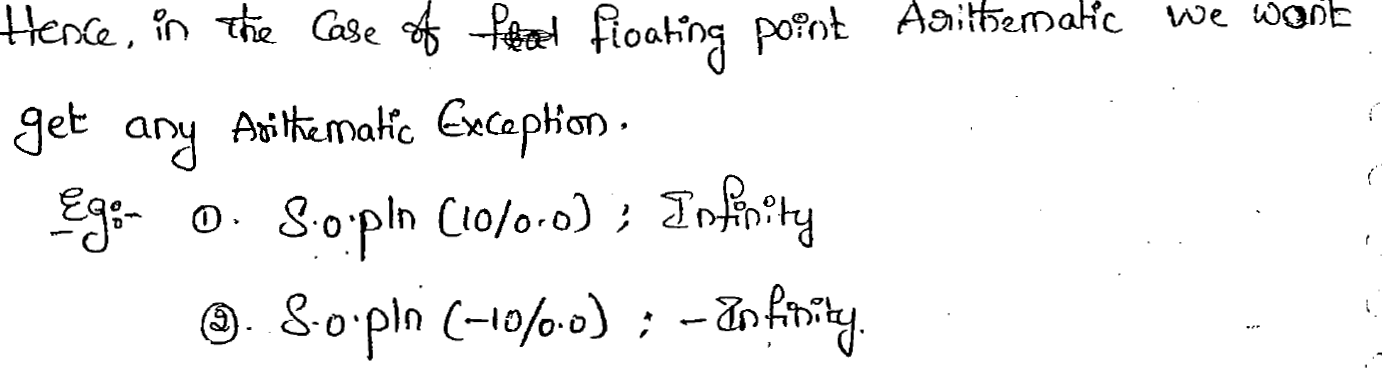 Hence, in the Case of floating point Arithematic we wont
get any Arithematic Exception.
Eg:- ①. S.o.pln (10/0.0) ; Infinity
②. S.o.pln (-10/0.0) ; -Infinity.